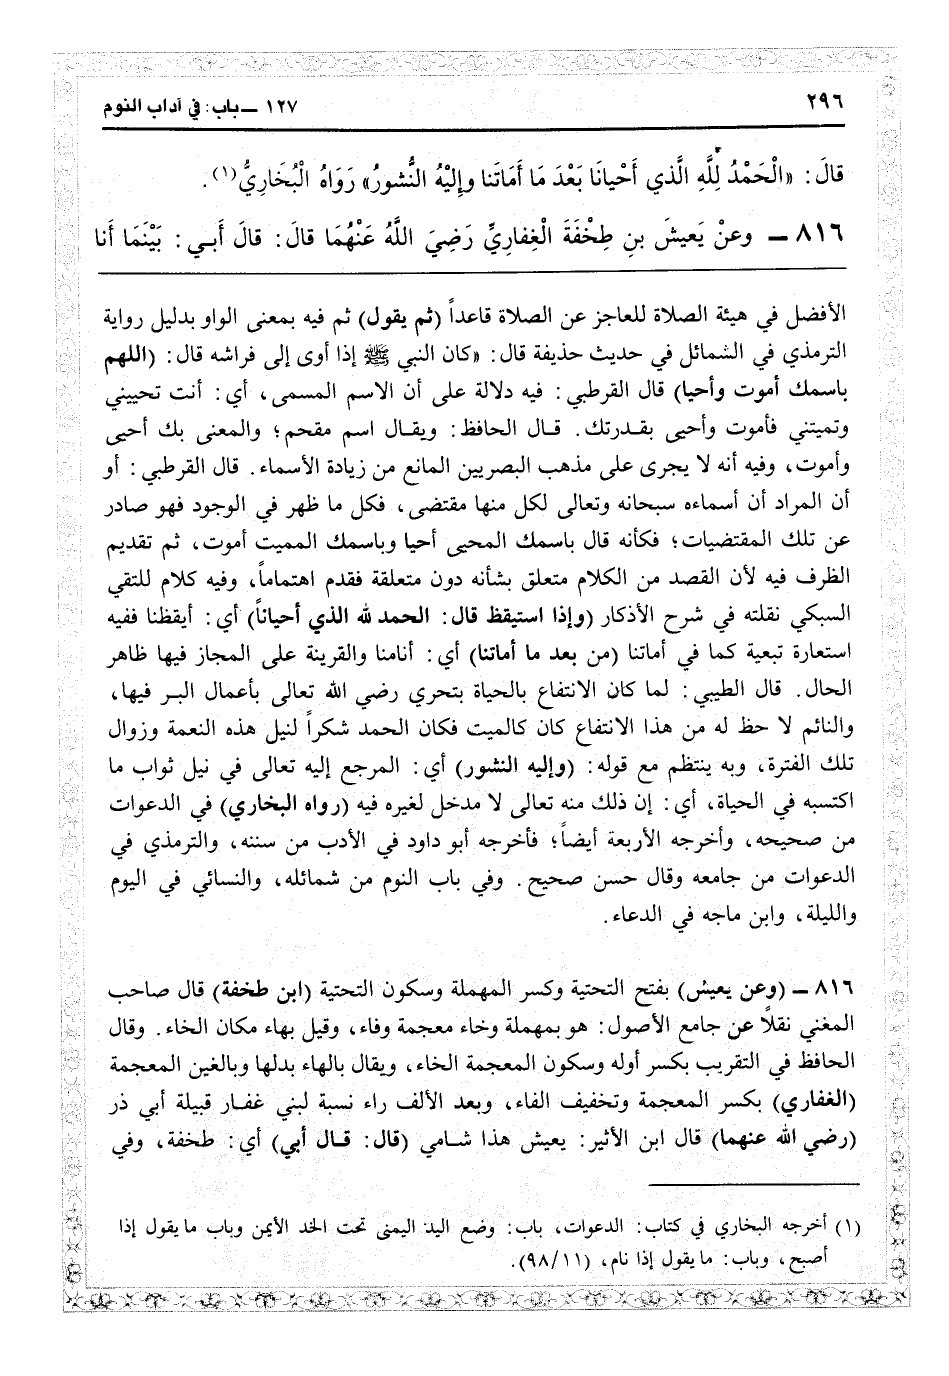 ٢٩٦
١٢٧ ــ باب: في آداب النوم
قالَ: «الْحَمْدُ لِلَّهِ الَّذي أَحْيانَا بَعْدَ مَا أَمَاتَنا وإِلَيْهِ النُّشورُ» رَوَاهُ الْبُخَارِيُّ(١).
٨١٦ ــ وعنْ يَعيشَ بنِ طِخْفَةَ الْغِفاريِّ رَضِيَ اللَّهُ عَنْهُمَا قالَ: قالَ أَبـي: بَيْنَمَا أَنا
الأفضل في هيئة الصلاة للعاجز عن الصلاة قاعداً (ثم يقول) ثم فيه بمعنى الواو بدليل رواية
الترمذي في الشمائل في حديث حذيفة قال: «كان النبي ﷺ إذا أوى إلى فراشه قال: (اللهم
باسمك أموت وأحيا) قال القرطبي: فيه دلالة على أن الاسم المسمى، أي: أنت تحييني
وتميتني فأموت وأحيى بقدرتك. قال الحافظ: ويقال اسم مقحم؛ والمعنى بك أحيى
وأموت، وفيه أنه لا يجرى على مذهب البصريين المانع من زيادة الأسماء. قال القرطبي: أو
أن المراد أن أسماءه سبحانه وتعالى لكل منها مقتضى، فكل ما ظهر في الوجود فهو صادر
عن تلك المقتضيات؛ فكأنه قال باسمك المحيى أحيا وباسمك المميت أموت، ثم تقديم
الظرف فيه لأن القصد من الكلام متعلق بشأنه دون متعلقة فقدم اهتماماً، وفيه كلام للتقي
السبكي نقلته في شرح الأذكار (وإذا استيقظ قال: الحمد لله الذي أحياناً) أي: أيقظنا ففيه
استعارة تبعية كما في أماتنا (من بعد ما أماتنا) أي: أنامنا والقرينة على المجاز فيها ظاهر
الحال. قال الطيبي: لما كان الانتفاع بالحياة بتحري رضي الله تعالى بأعمال البـر فيها،
والنائم لا حظ له من هذا الانتفاع كان كالميت فكان الحمد شكراً لنيل هذه النعمة وزوال
تلك الفترة، وبه ينتظم مع قوله: (وإليه النشور) أي: المرجع إليه تعالى في نيل ثواب ما
اكتسبه في الحياة، أي: إن ذلك منه تعالى لا مدخل لغيره فيه (رواه البخاري) في الدعوات
من صحيحه، وأخرجه الأربعة أيضاً؛ فأخرجه أبو داود في الأدب من سننه، والترمذي في
الدعوات من جامعه وقال حسن صحيح. وفي باب النوم من شمائله، والنسائي في اليوم
والليلة، وابن ماجه في الدعاء.
٨١٦ ــ (وعن يعيش) بفتح التحتية وكسر المهملة وسكون التحتية (ابن طخفة) قال صاحب
المغني نقلاً عن جامع الأصول: هو بمهملة وخاء معجمة وفاء، وقيل بهاء مكان الخاء. وقال
الحافظ في التقريب بكسر أوله وسكون المعجمة الخاء، ويقال بالهاء بدلها وبالغين المعجمة
(الغفاري) بكسر المعجمة وتخفيف الفاء، وبعد الألف راء نسبة لبني غفـار قبيلة أبي ذر
(رضي الله عنهما) قال ابن الأثير: يعيش هذا شـامي (قال: قـال أبي) أي: طخفة، وفي
(١) أخرجه البخاري في كتاب: الدعوات، باب: وضع اليد اليمنى تحت الخد الأيمن وباب ما يقول إذا
أصبح، وباب: ما يقول إذا نام، (٩٨/١١).